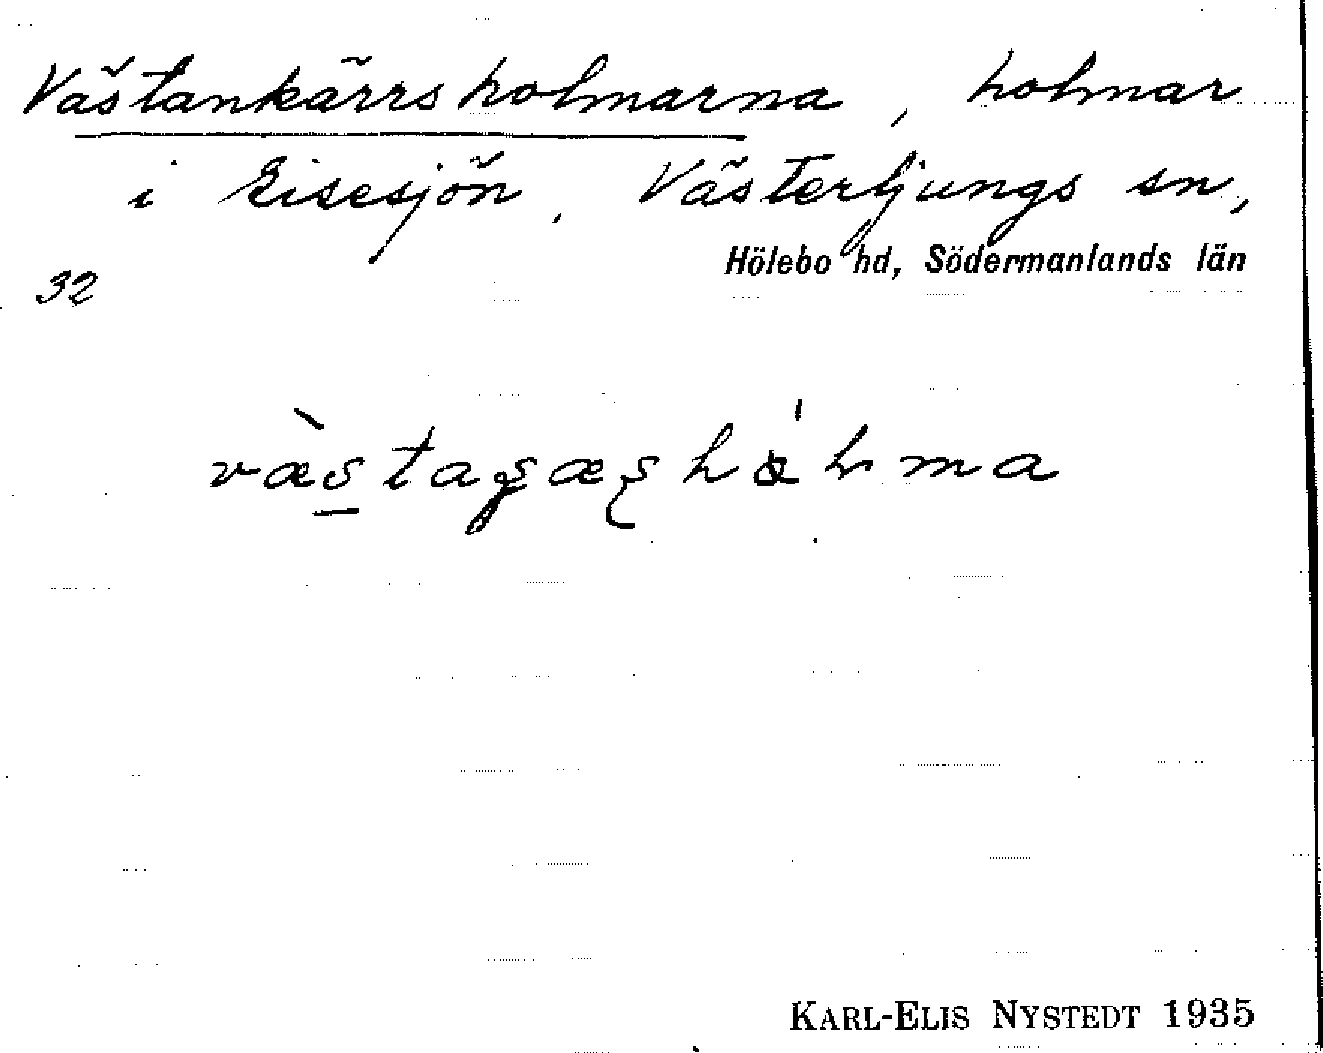 Västankärrsholmarna, holmar
i Lisesjön, Västerljungs sn,
Hölebo hd, Södermanlands län
32
KARL-ELIS NYSTEDT 1935